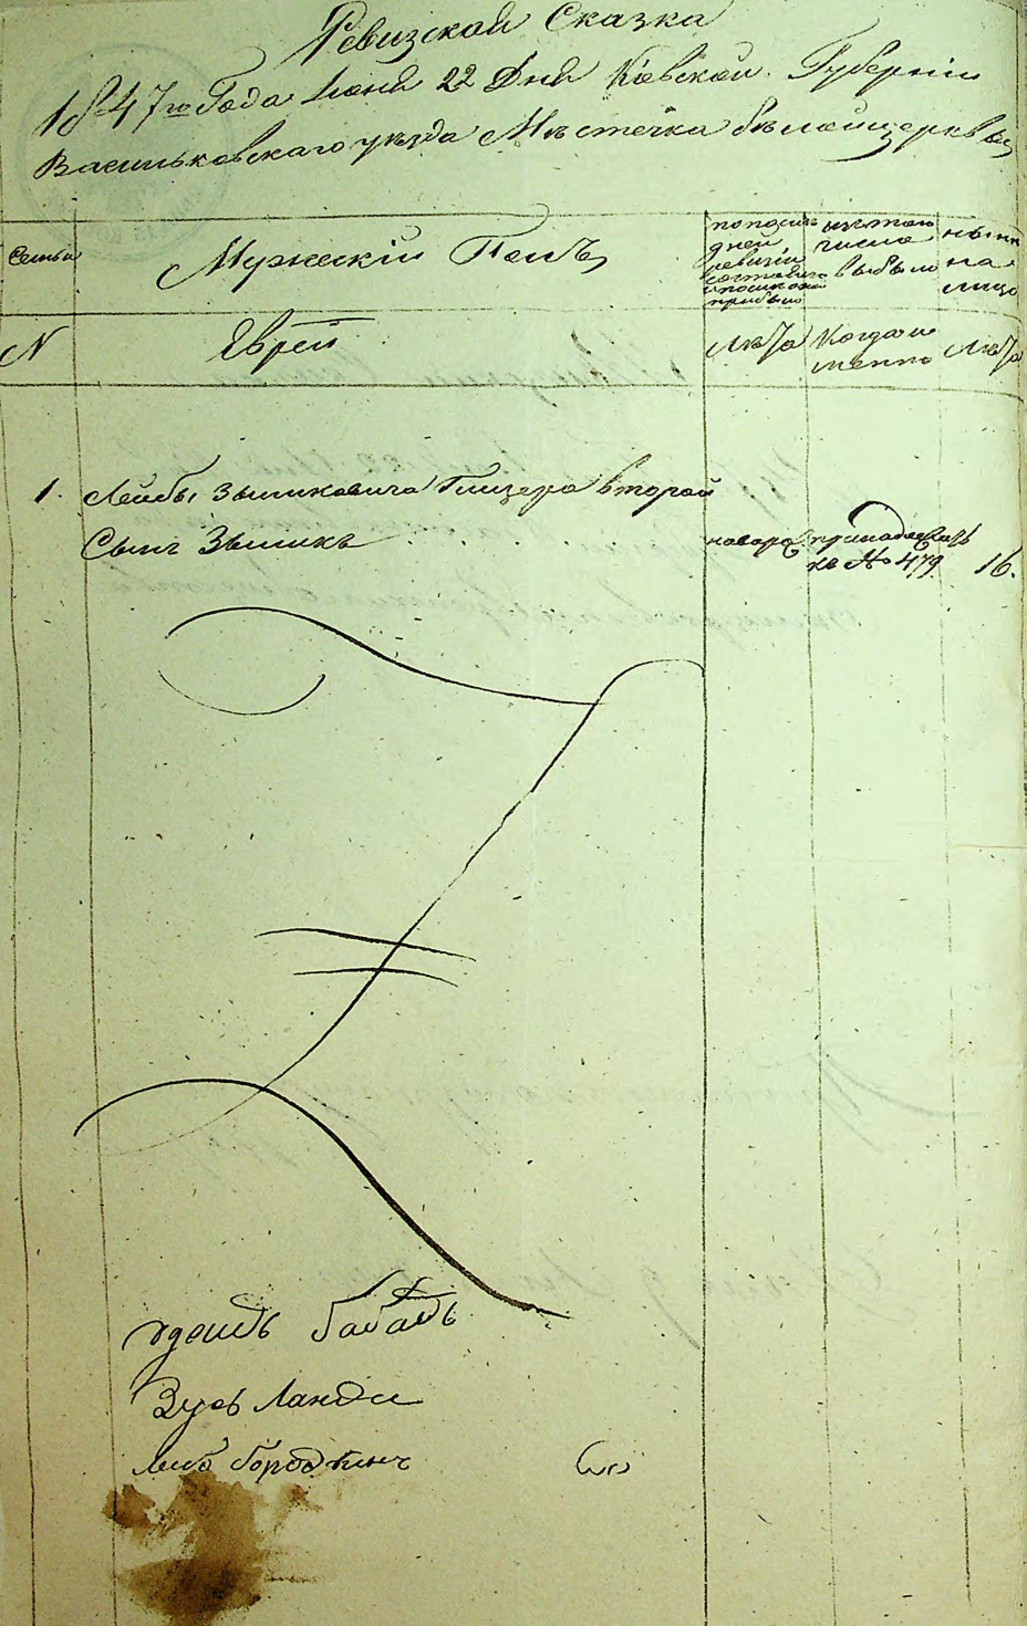 Ревизской Сказка
1847го Года Июня 22 Дня Кіевской Губерніи
Васильковскаго уѣзда Мѣстечка бѣлой церквы
Семьи
Мужескій Полъ
по последней ревизіи состояло и после оной прибыло
изъ того числа выбыло
нынѣ на лицо
N
Евреи
Лѣта
Когда именно
Лѣта
1. Лейбы Зьмиковича второй
Сынъ Зьмикъ
новоро. принадлежитъ
къ No 479.
16.
Зусь Ланда
Лейб Бородкинъ